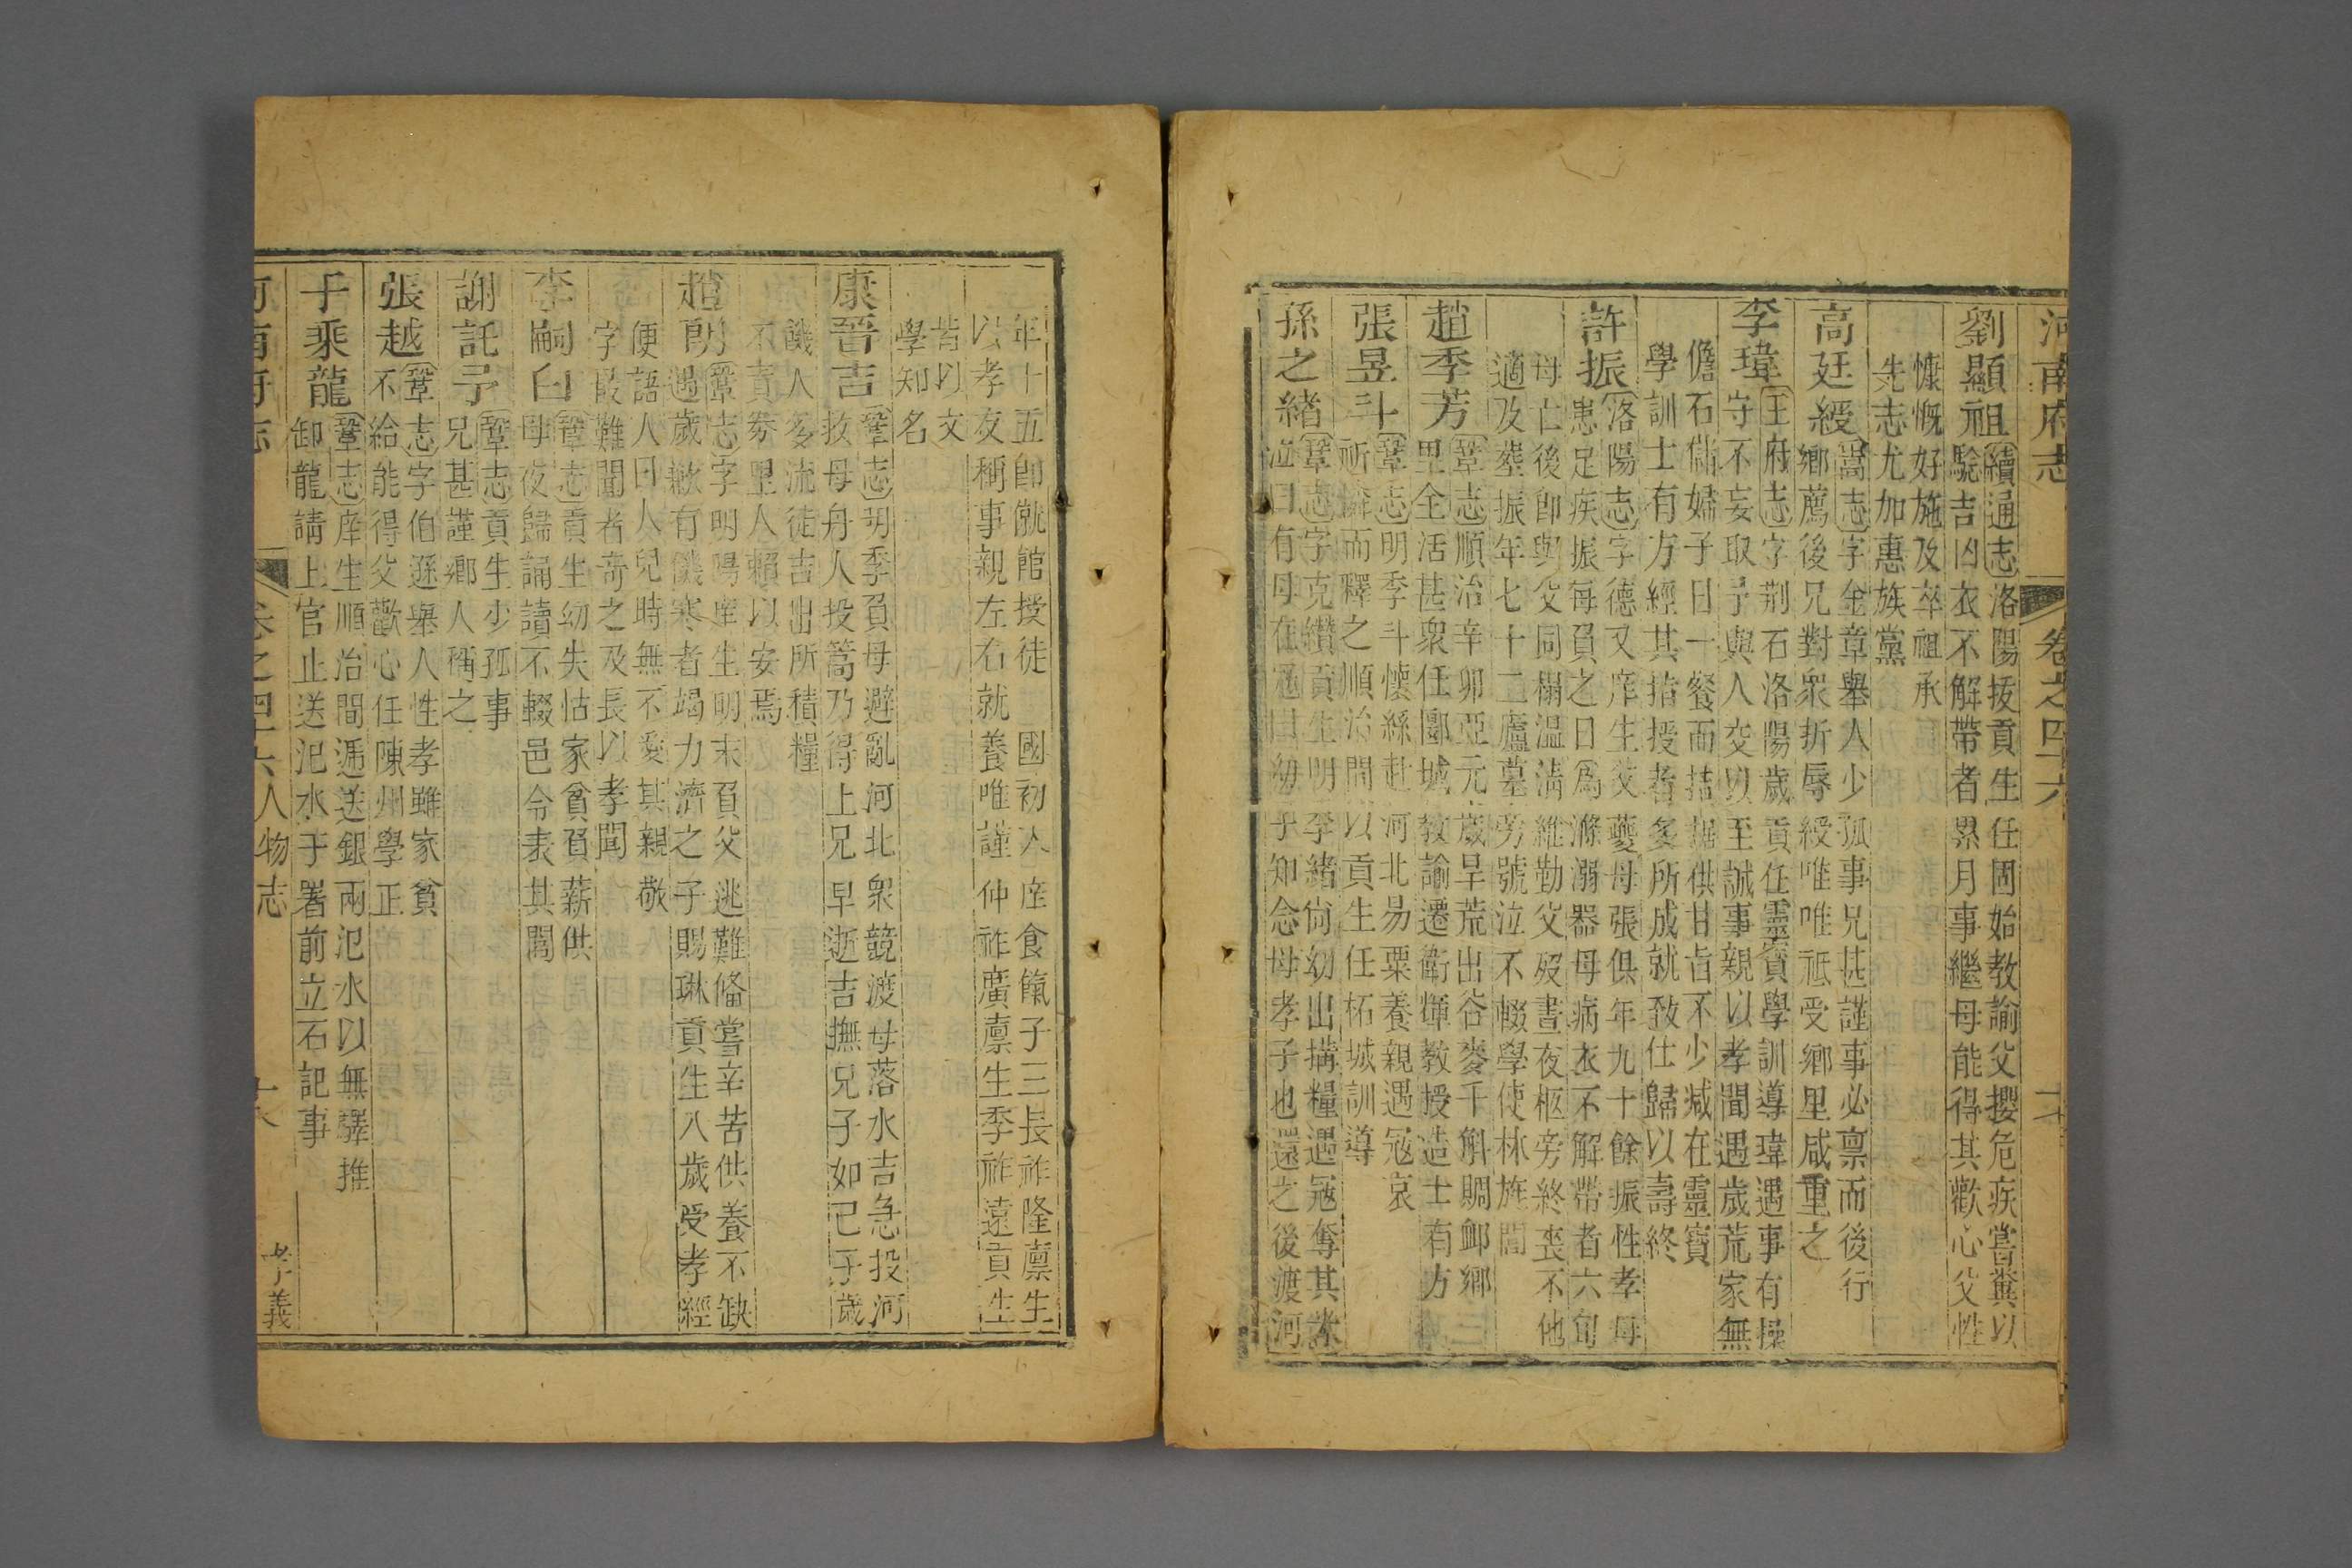 河南府志
卷之四十六
劉顯祖
續通志洛陽拔貢生任固始教諭父攖危疾嘗糞以
驗吉凶衣不解帶者累月事繼母能得其歡心父性
慷慨好施及卒祖承
先志尤加惠族黨
高廷綬
嵩志字金章舉人少孤事兄甚謹事必禀而後行
鄉薦後兄對衆折辱綬唯唯祗受鄉里咸重之
李瑋
王府志字荆石洛陽歲貢任靈寳學訓導瑋遇事有操
守不妄取予與人交以至誠事親以孝聞遇歲荒家無
儋石儲婦子日一餐而拮据供甘旨不少减在靈寳
學訓士有方經其拮授者多所成就致仕歸以壽終
許振
洛陽志字德又庠生父夔母張俱年九十餘振性孝母
患足疾振每負之日爲滌溺器母病衣不解帶者六旬
母亡後卽與父同榻温凊維勤父歿晝夜柩旁終喪不他
適及塟振年七十二廬墓旁號泣不輟學使林旌閭
趙季芳
鞏志順治辛卯亞元歲旱荒出谷麥千斛賙邺鄉
里全活甚衆任郾城教諭遷衛輝教授造士有方
張昱斗
鞏志明季斗懐絲赴河北易粟養親遇冦哀
祈憐而釋之順治間以貢生任柘城訓導
孫之緒
鞏志字克纘貢生明季緒尙幼出搆糧遇冦奪其米
泣曰有母在冦曰幼子知念母孝子也還之後渡河
年十五卽僦館授徒 國初入庠食餼子三長祚隆廪生
以孝友稱事親左右就養唯謹仲祚廣廪生季祚遠貢生
皆以文
學知名
康晉吉
鞏志明季負母避亂河北衆競渡母落水吉急投河
救母舟人投篙乃得上兄早逝吉撫兄子如已子歲
饑人多流徒吉出所積糧
不責劵里人賴以安焉
趙朗
鞏志字明陽庠生明末負父逃難偹嘗辛苦供養不缺
遇歲歉有饑寒者竭力濟之子賜琳貢生八歲受孝經
便語人曰人兒時無不愛其親敬
字最難聞者奇之及長以孝聞
李嗣白
鞏志貢生幼失怙家貧負薪供
母夜歸誦讀不輟邑令表其閭
謝託予
鞏志貢生少孤事
兄甚謹鄉人稱之
張越
鞏志字伯遜舉人性孝雖家貧
不給能得父歡心任陳州學正
于乘龍
鞏志庠生順治間逓送銀兩汜水以無驛推
卸龍請上官止送汜水于署前立石記事
河南府志
卷之四十六人物志
孝義